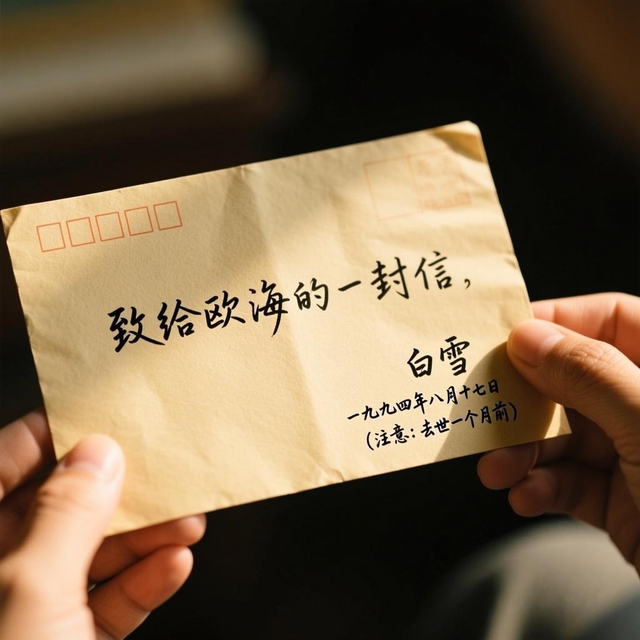 致给欧海的一封信，
白雪
一九九四年八月十七日
（注意：去世一个月前）